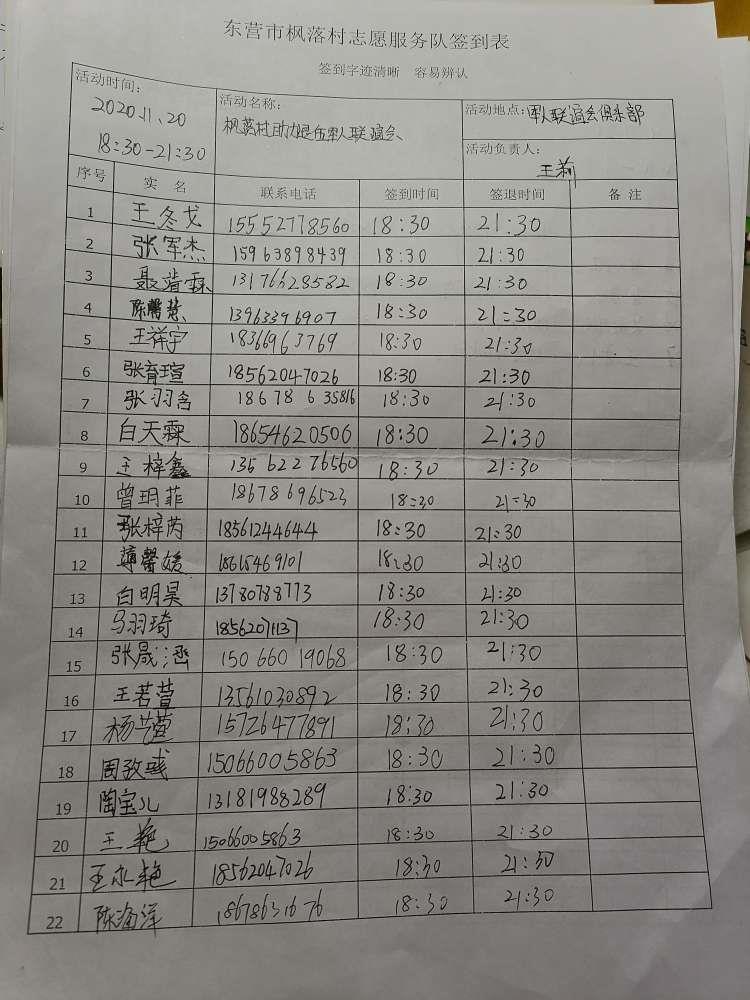 东营市枫落村志愿服务队签到表
签到字迹清晰 容易辨认
活动时间: 2020.11.20 18:30-21:30
活动名称: 枫落村助力退伍军人联谊会
活动地点: 军人联谊会俱乐部
活动负责人: 王莉
序号 实 名 联系电话 签到时间 签退时间 备 注
1 王冬戈 15552778560 18:30 21:30
2 张军杰 15963898439 18:30 21:30
3 聂 霖 13176628582 18:30 21:30
4 陈馨慧 13963396907 18:30 21:30
5 王祥宇 18366963769 18:30 21:30
6 张育瑄 18562047026 18:30 21:30
7 张羽含 18678635816 18:30 21:30
8 白天霖 18654620506 18:30 21:30
9 王梓鑫 13562276560 18:30 21:30
10 曾玥菲 18678696523 18:30 21:30
11 张梓芮 18561244644 18:30 21:30
12 馨媛 18615469101 18:30 21:30
13 白明昊 13780788773 18:30 21:30
14 马羽琦 18562071137 18:30 21:30
15 张晟涵 15066019068 18:30 21:30
16 王若萱 13561030892 18:30 21:30
17 杨艺萱 15726477891 18:30 21:30
18 周孜彧 15066005863 18:30 21:30
19 陶宝儿 13181988289 18:30 21:30
20 王艳 15066005863 18:30 21:30
21 王永艳 18562047026 18:30 21:30
22 陈海洋 18678631676 18:30 21:30